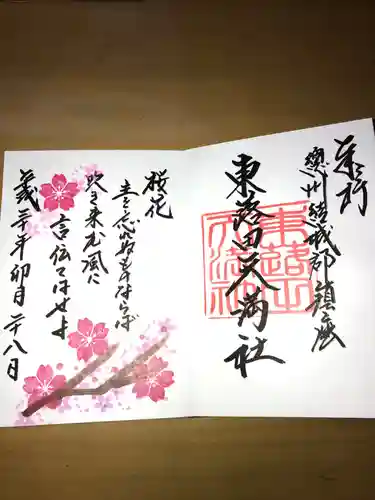 奉拝
總州結城郡鎮座
東蕗田天満社
桜花
主を忘れぬものならば
吹き来む風に
言伝てはせよ
卯月二十八日